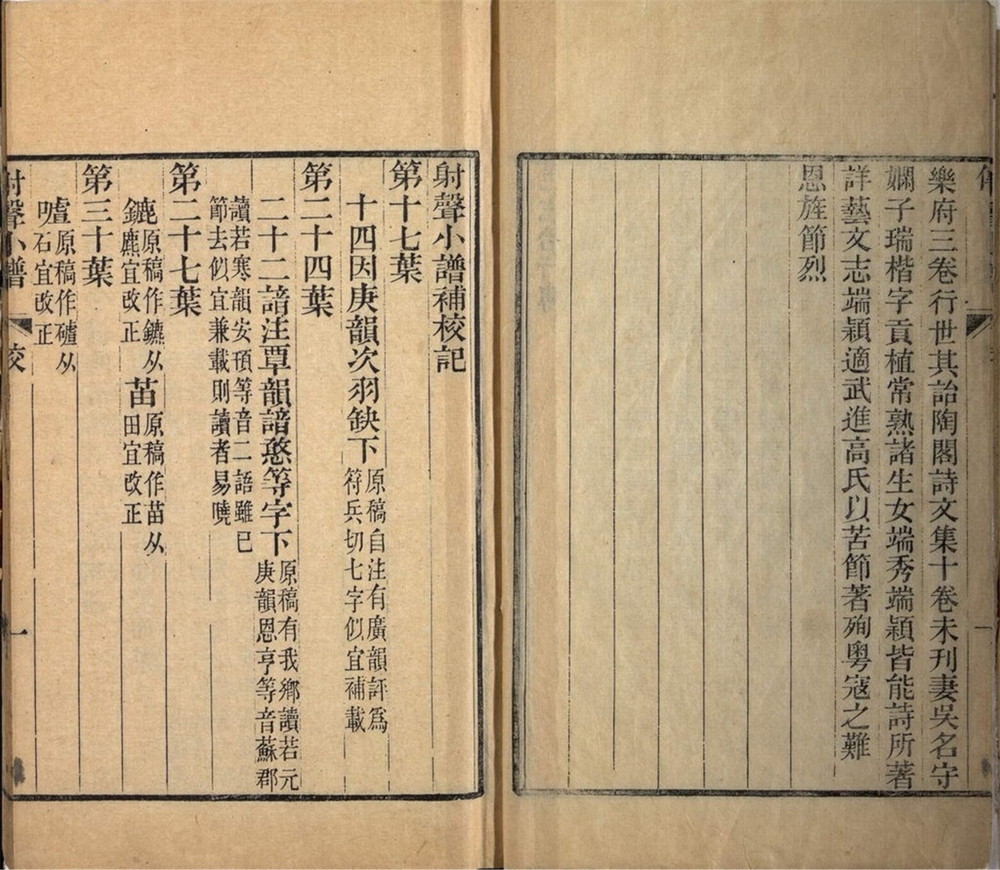 樂府三卷行世其詒陶閣詩文集十卷未刊妻吳名守
嫻子瑞楷字貢植常熟諸生女端秀端穎皆能詩所著
詳藝文志端穎適武進高氏以苦節著殉粵寇之難
恩旌節烈
一
射聲小譜補校記
第十七葉
十四因庚韻次羽缺下
原稿自注有廣韻評爲
符兵切七字似宜補載
第二十四葉
二十二諳注覃韻諳憨等字下
原稿有我鄉讀若元
庚韻恩亨等音蘇郡
讀若寒韻安頇等音二語雖已
節去似宜兼載則讀者易曉
第二十七葉
鏕原稿作鑣从
鹿宜改正
苗原稿作苗从
田宜改正
第三十葉
嚧原稿作礚从
石宜改正
射聲小譜
校
一